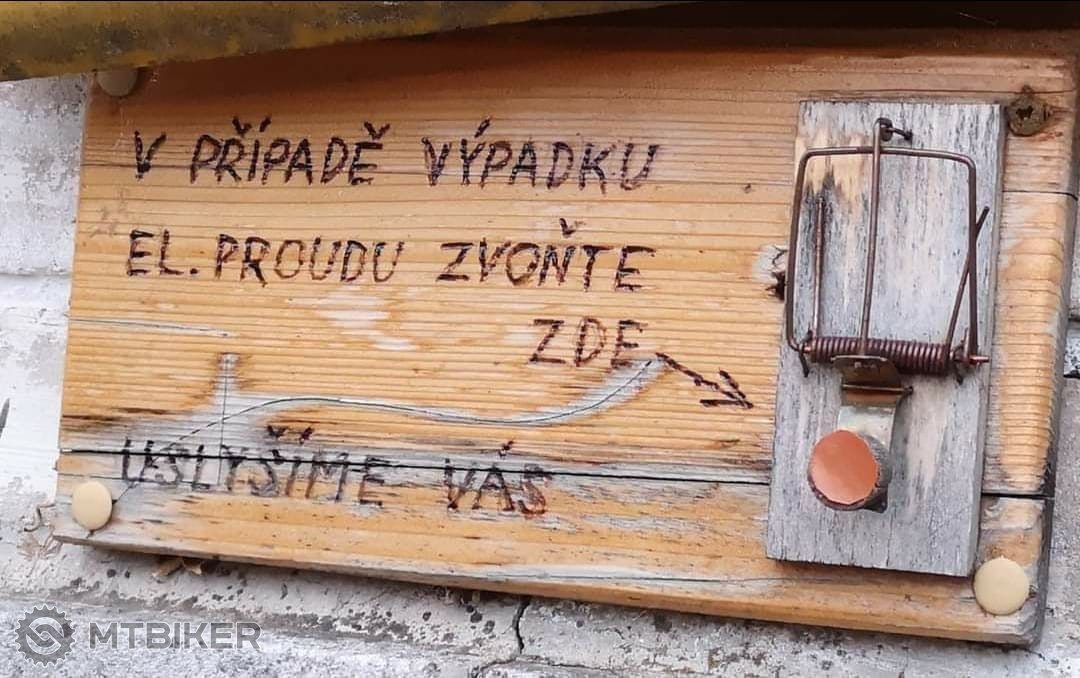 V PŘÍPADĚ VÝPADKU
EL. PROUDU ZVOŇTE
ZDE
USLYŠÍME VÁS
MTBIKER